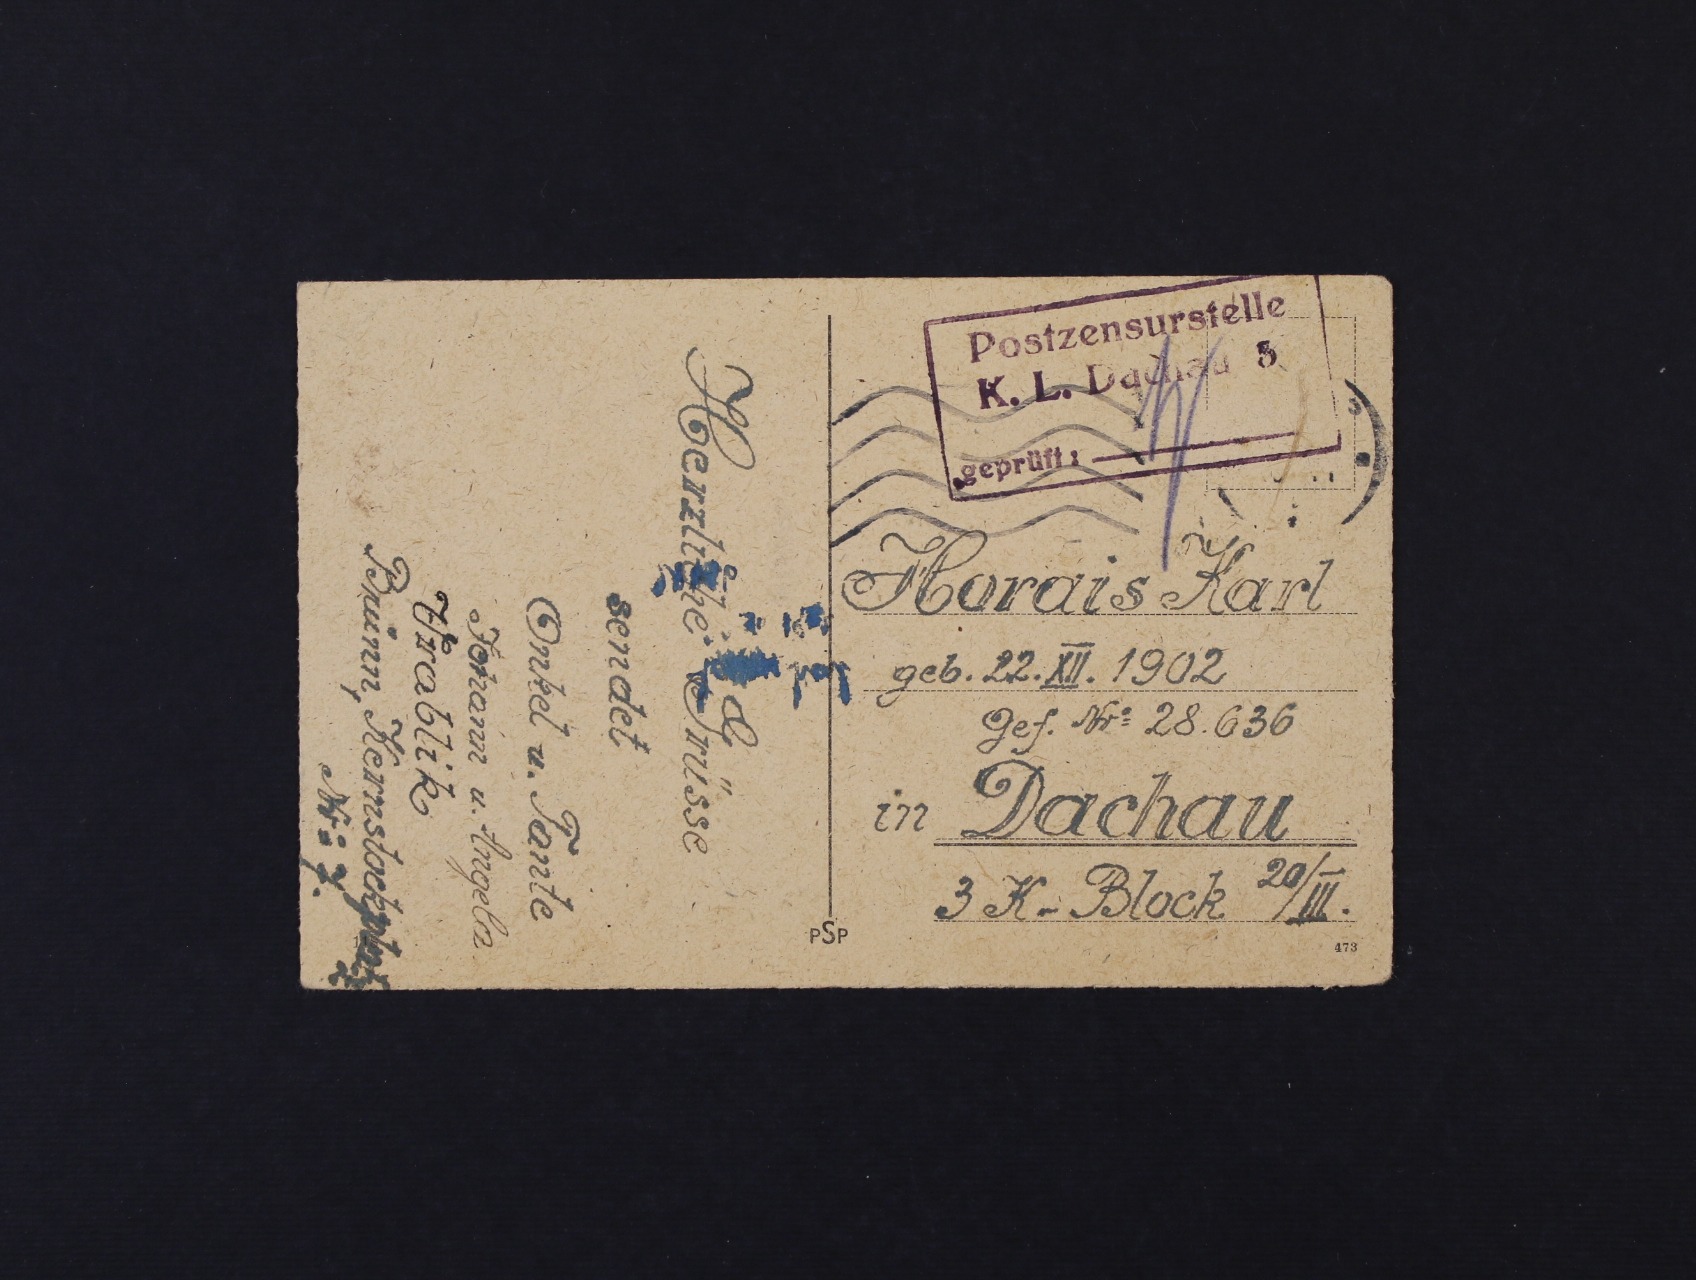 Herzliche Grüsse
sendet
Onkel u. Tante
Johann u. Angela
Vrablik
Brünn,
Nr: 7.
Postzensurstelle
K. L. Dachau 3
geprüft:
Horais Karl
geb. 22.XII. 1902
Gef. Nr: 28.636
in Dachau
3 K - Block 20/III.
PSP
473